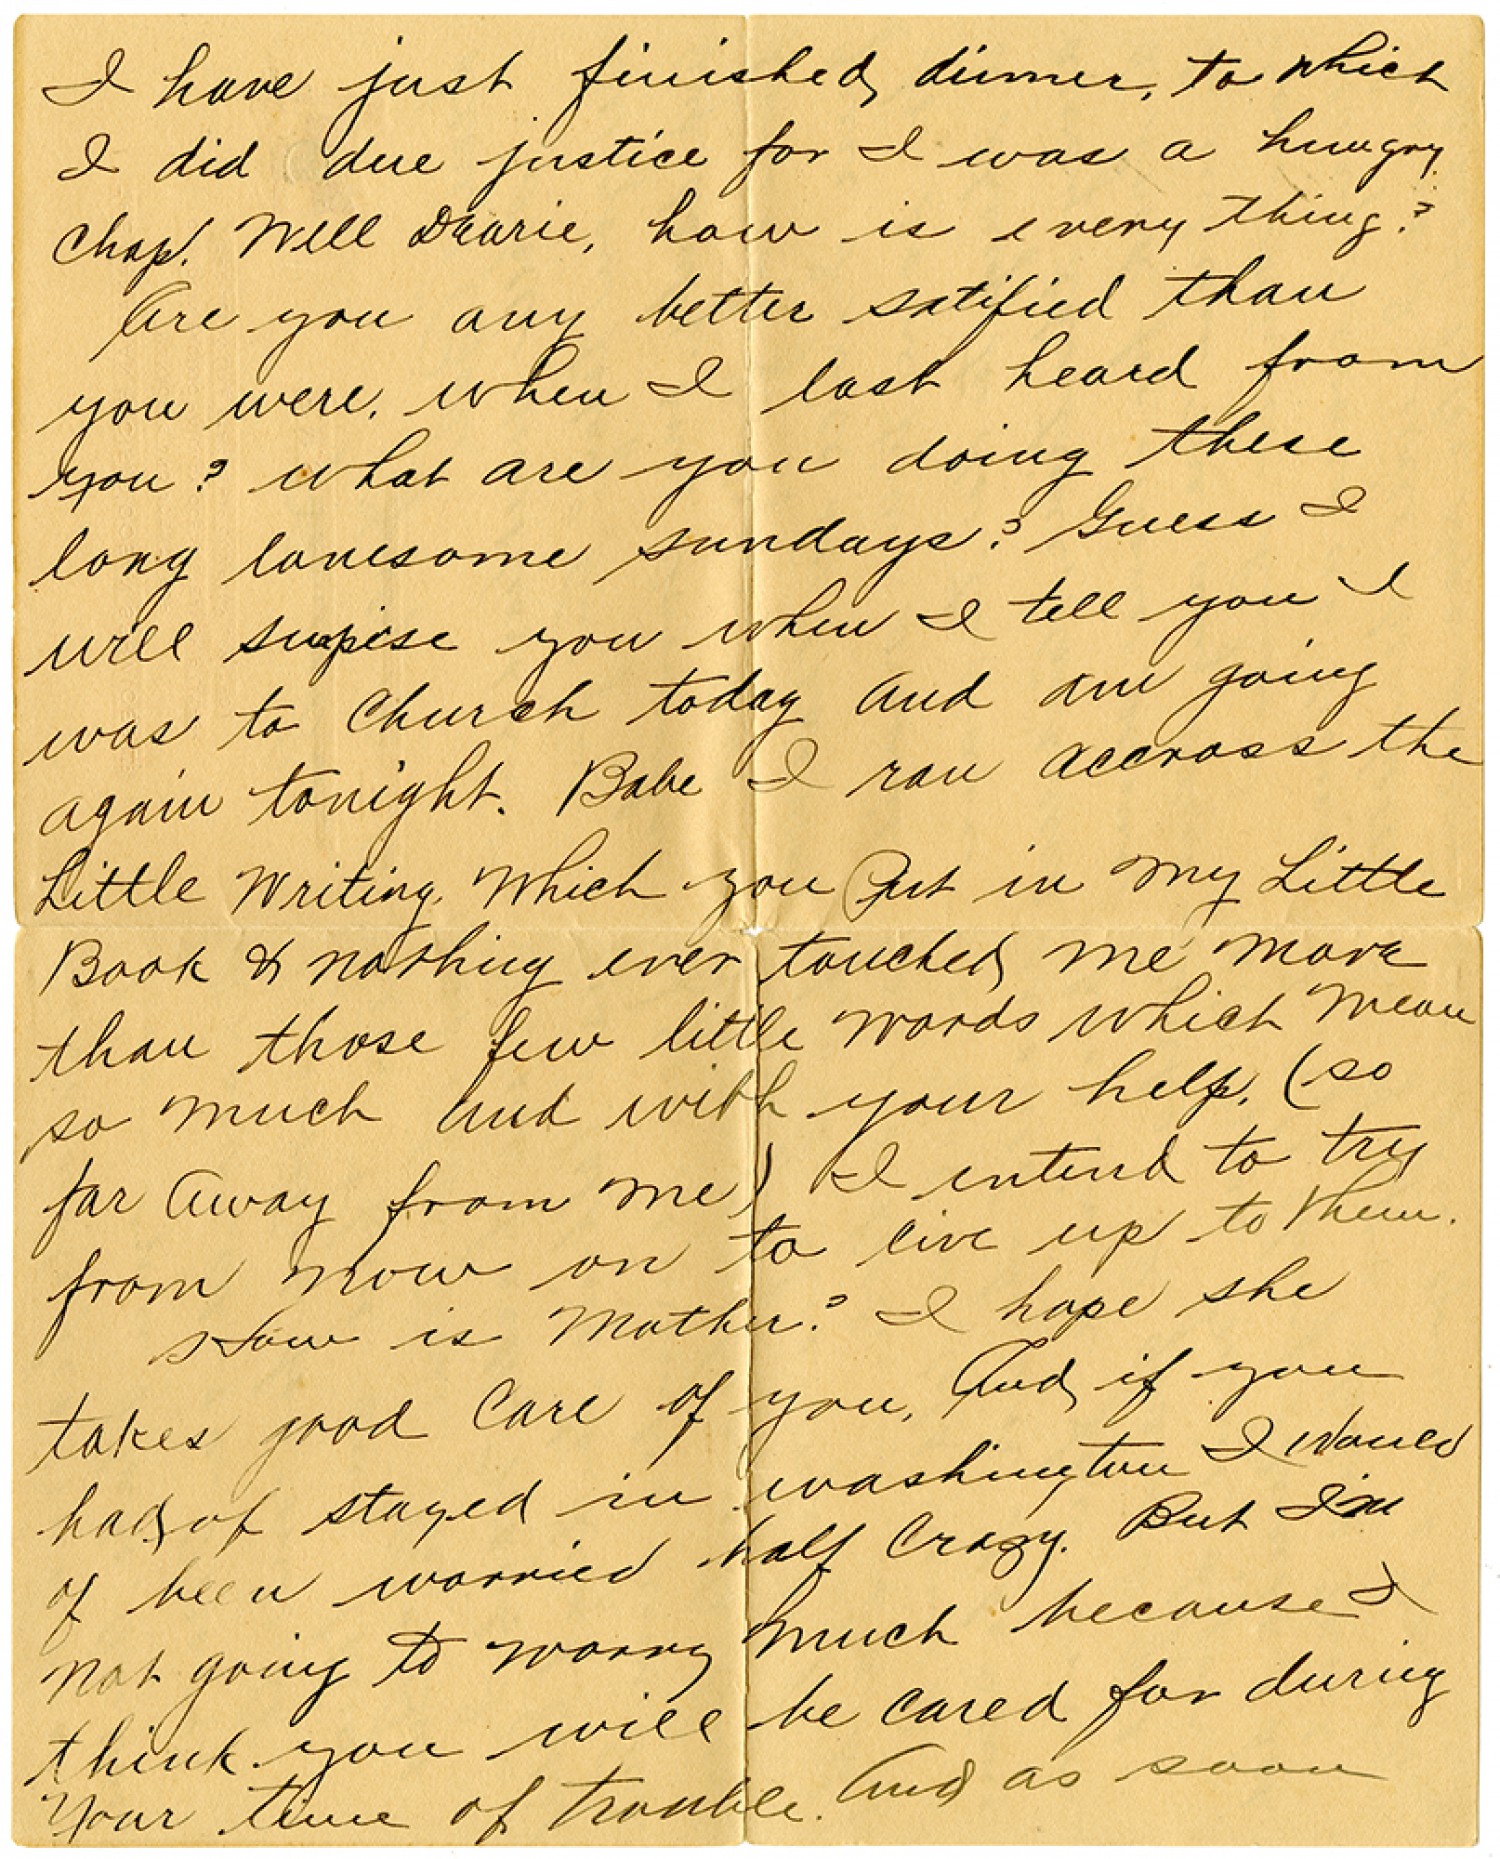 I have just finished dinner, to which
I did due justice for I was a hungry
Chap. Well Dearie, how is every thing?
Are you any better satified than
you were, when I last heard from
you? What are you doing these
long lonesome sundays? Guess I
will supise you when I tell you I
was to Church today and am going
again tonight. Babe I ran accross the
Little Writing. Which you Put in my Little
Book & nothing ever touched me more
than those few little words which mean
so much and with your help, (so
far away from me) I intend to try
from now on to live up to them.
How is Mother? I hope she
takes good care of you, And if you
had of stayed in washington I would
of been worried half crazy. But I'm
not going to worry much because I
think you will be cared for during
your time of trouble. And as soon